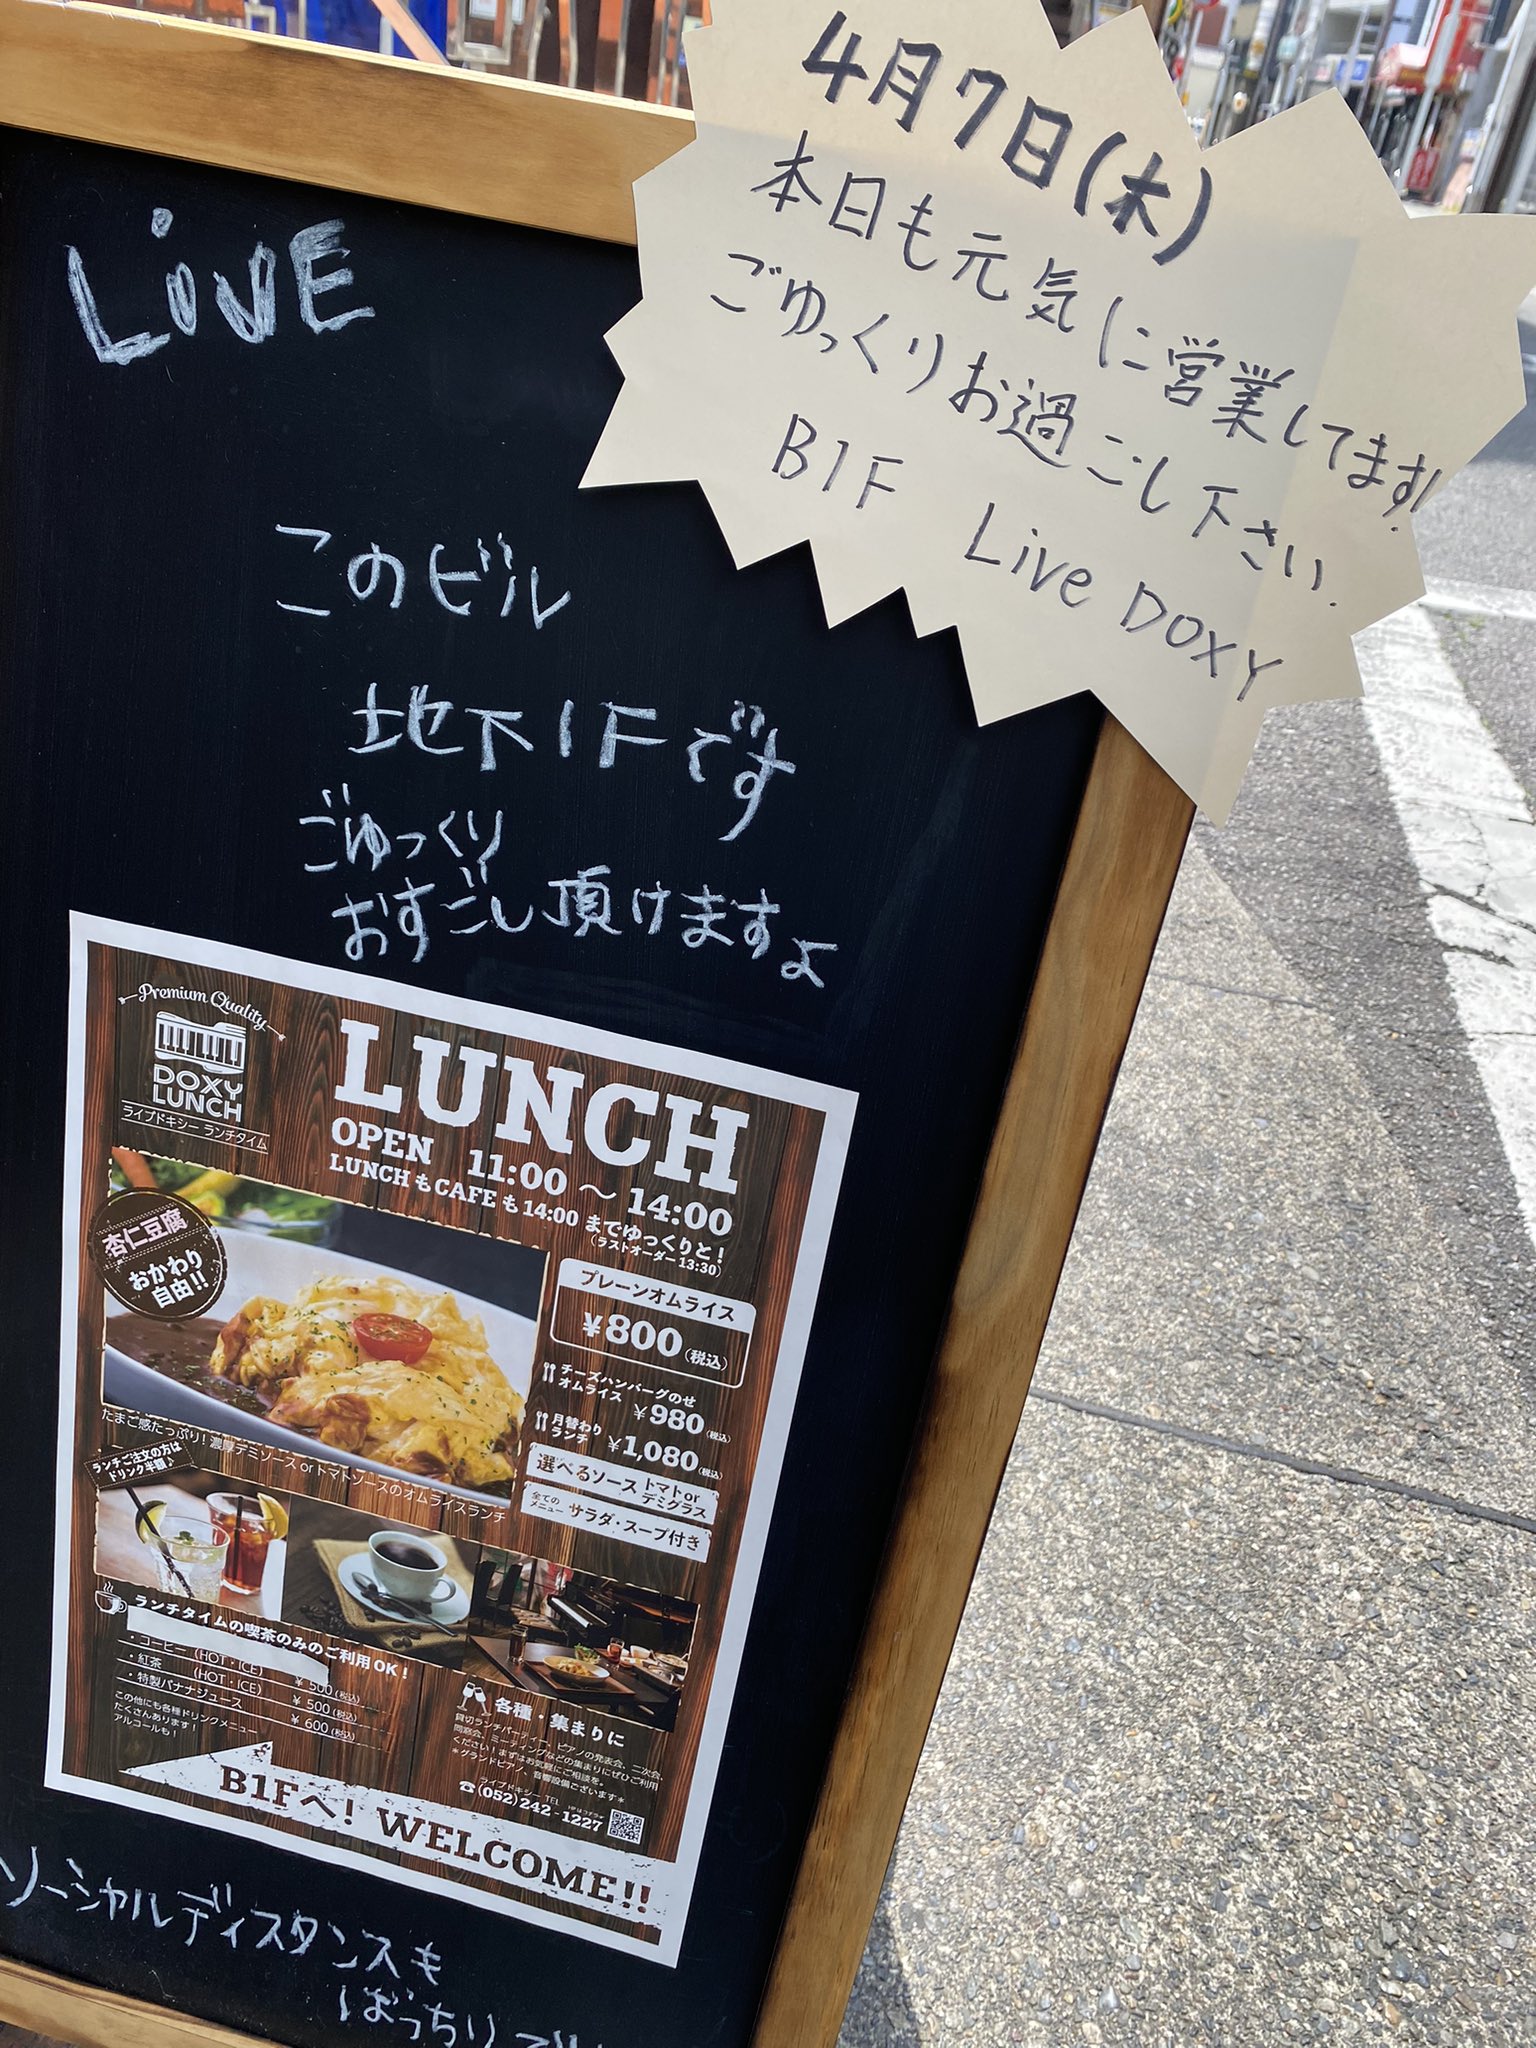 4月7日(木)
本日も元気に営業してます!
ごゆっくりお過ごし下さい.
B1F Live DOXY
LiVE
このビル
地下1Fです
ごゆっくり
おすごし頂けますよ
Premium Quality
DOXY
LUNCH
ライブドキシー ランチタイム
LUNCH
OPEN 11:00 〜 14:00
LUNCH も CAFE も 14:00 までゆっくりと!
(ラストオーダー 13:30)
杏仁豆腐
おかわり
自由!!
プレーンオムライス
¥800 (税込)
チーズハンバーグのせ
オムライス ¥980 (税込)
月替わり
ランチ ¥1,080 (税込)
選べるソース トマト or デミグラス
全てのメニュー サラダ・スープ付き
たまご感たっぷり! 濃厚デミソース or トマトソースのオムライスランチ
ランチご注文の方は
ドリンク半額♪
ランチタイムの喫茶のみのご利用 OK!
・コーヒー (HOT・ICE) ¥500 (税込)
・紅茶 (HOT・ICE) ¥500 (税込)
・特製バナナジュース ¥600 (税込)
この他にも各種ドリンクメニュー
たくさんあります!
アルコールも!
各種・集まりに
貸切ランチパーティー、ピアノの発表会、二次会、
同窓会、ミーティングなどの集まりにぜひご利用
ください!まずはお気軽にご相談を。
*グランドピアノ、音響設備ございます*
ライブドキシー TEL
☎(052)242-1227
B1Fへ! WELCOME!!
ソーシャルディスタンスも
ばっちり